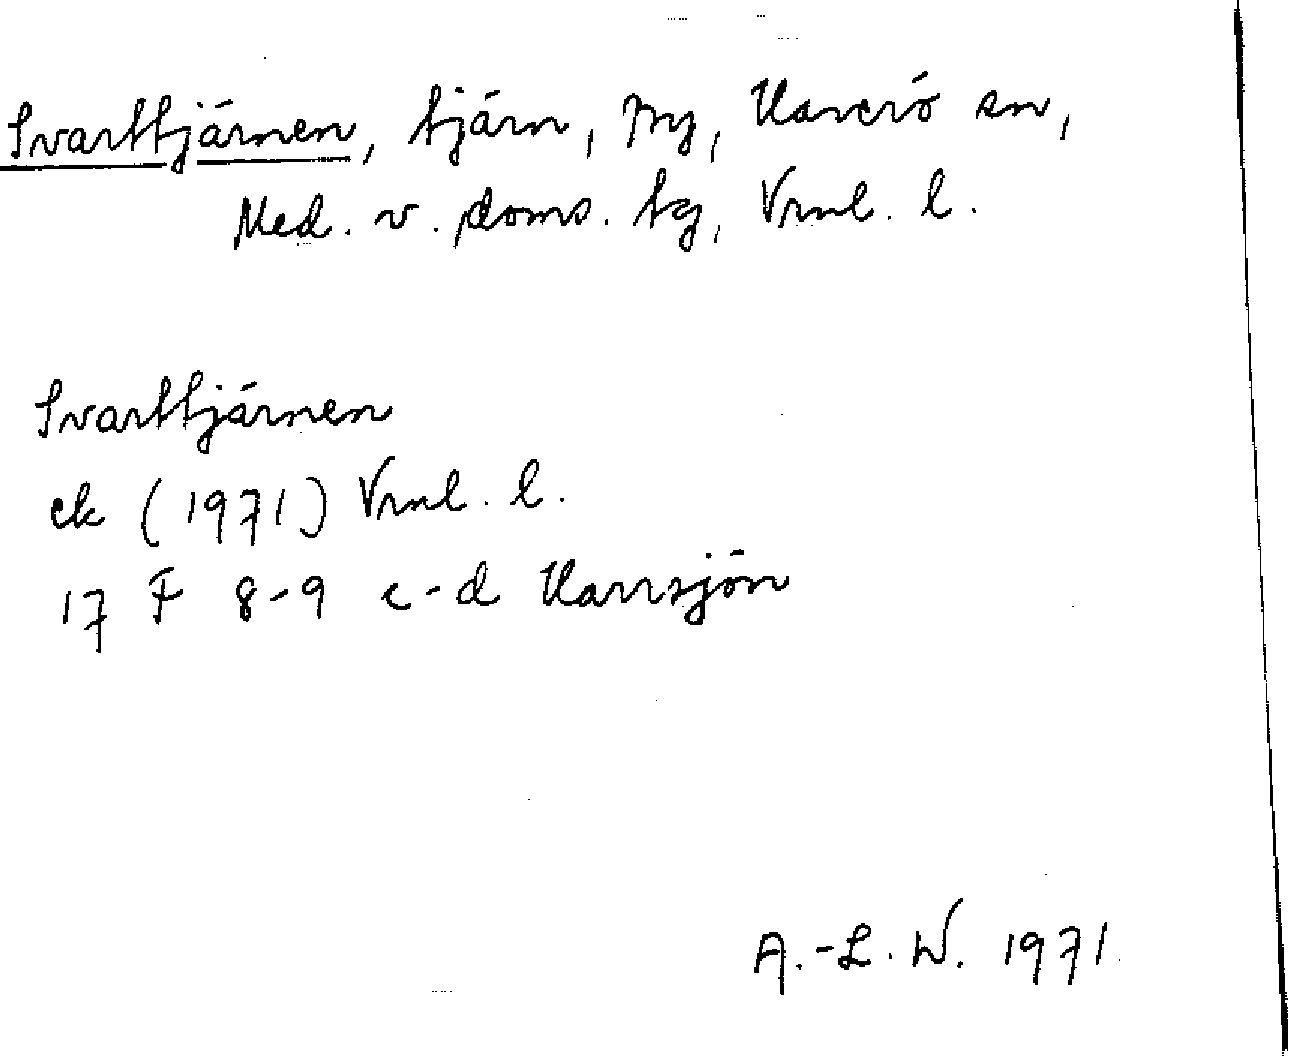 Svarttjärnen, tjärn, My, Haverö sn,
Med. v. doms. tg, Vrnl. l.
Svarttjärnen
ek (1971) Vrnl. l.
17 F 8-9 c-d Harrsjön
A.-L. W. 1971